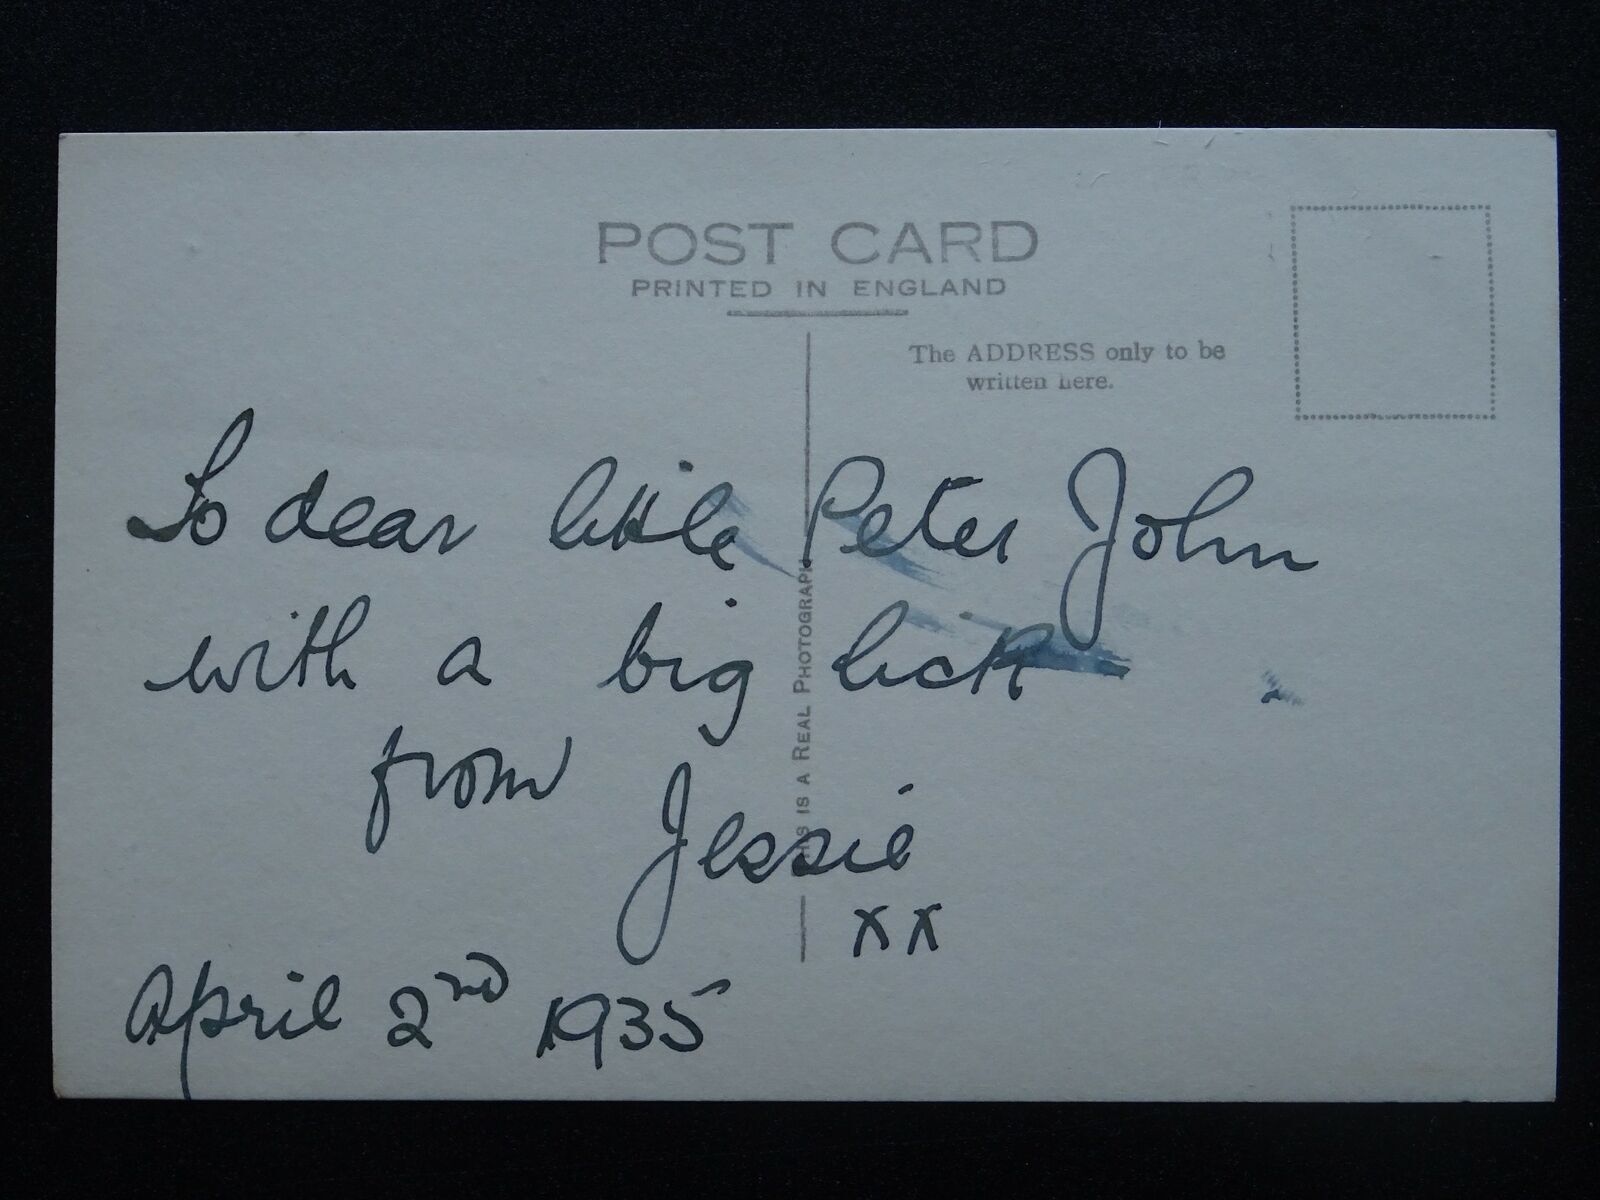 POST CARD
PRINTED IN ENGLAND
The ADDRESS only to be
written here.
To dear little Peter John
with a big lick
from
Jessie
xx
April 2nd 1935
THIS IS A REAL PHOTOGRAPH